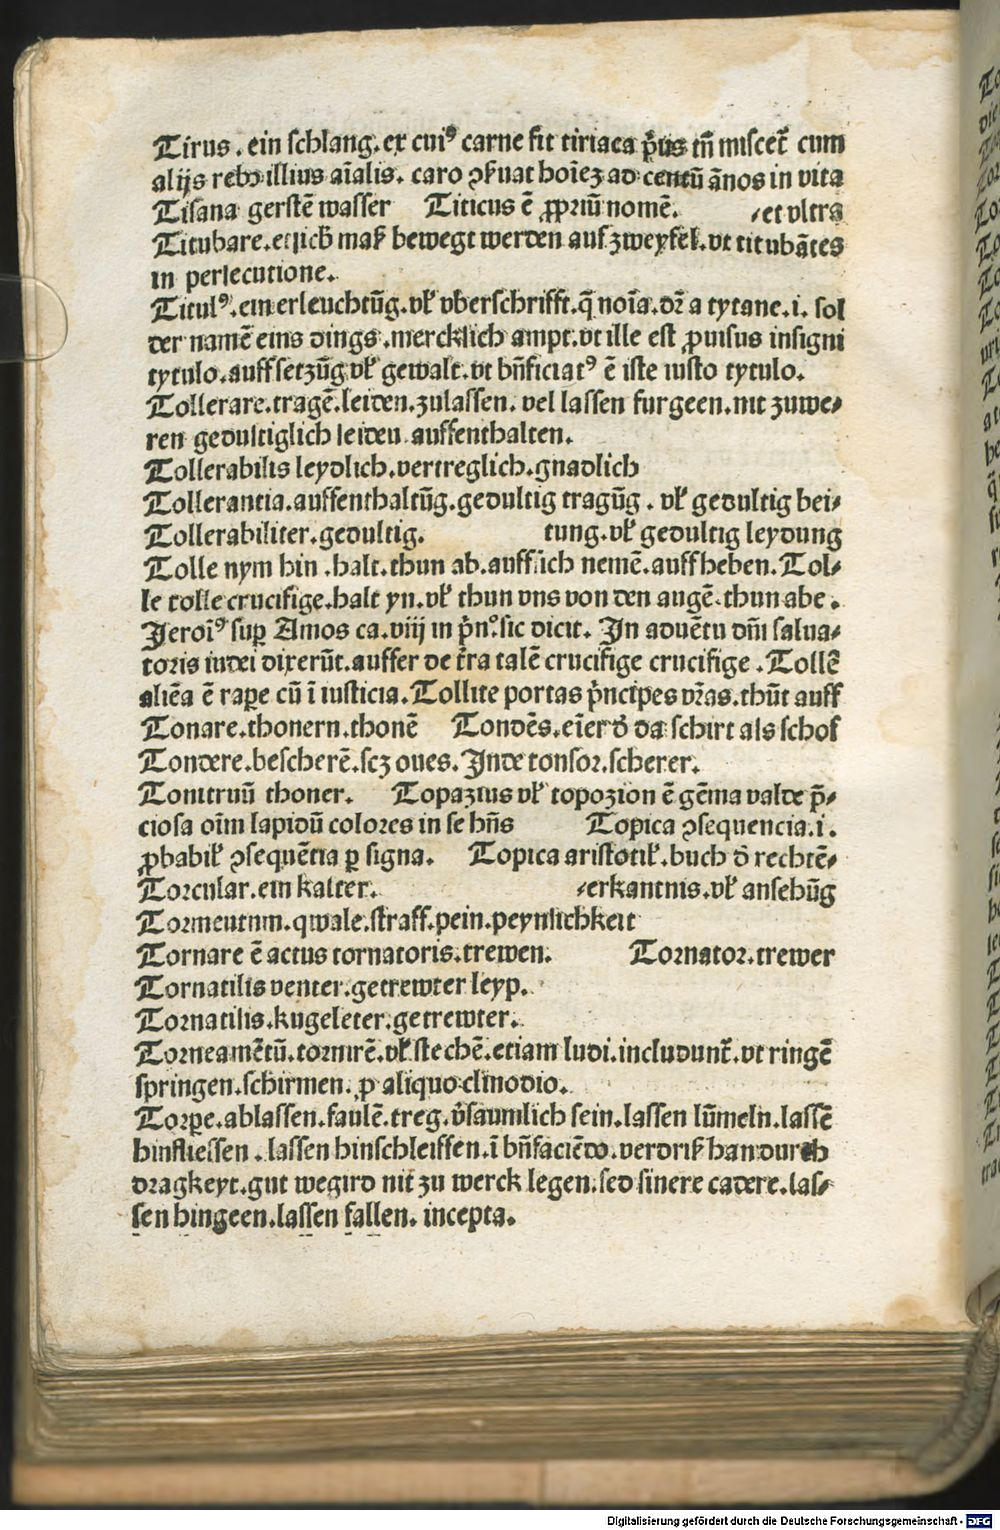 Tirus . ein schlang. ex cuiꝰ carne fit tiriaca p̄us tn̄ miscet̄ cum
alijs rebꝫ illius aīalis. caro ꝯẜuat hoīeꝫ ad centū ānos in vita
Tisana gerstē wasser Titicus ē ꝓpriū nomē. ⸗et vltra
Titubare. etlicħ maſz bewegt werden auſz zweyfel. vt titubātes
in persecutione.
Titulꝰ. ein erleuchtūg. vel vberschrifft. q̄ noīa. dr̄ a tytane. i. sol
der namē eins dings. mercklich ampt. vt ille est ꝓuisus insigni
tytulo. auffsetzūg vel gewalt. vt bn̄ficiatꝰ ē iste iusto tytulo.
Tollerare. tragē. leiden. zulassen. vel lassen furgeen. nit zuwe⸗
ren gedultiglich leiden auffenthalten.
Tollerabilis leydlich. vertreglich. gnadlich
Tollerantia. auffenthaltūg. gedultig tragūg . vel gedultig bei⸗
Tollerabiliter. gedultig. tung. vel gedultig leydung
Tolle nym hin . halt. thun ab. auff sich nemē. auffheben. Tol⸗
le tolle crucifige. halt yn. vel thun vns von den augē. thun abe .
Jeroīꝰ suꝑ Amos ca. viij in p̄nº. sic dicit. Jn aduētu dn̄i salua⸗
toris iudei dixerūt. auffer de tr̄a talē crucifige crucifige . Tollē
aliēa ē raꝑe cū ī iusticia. Tollite portas p̄ncipes vr̄as. thūt auff
Tonare. thonern. thonē Tondēs. eīer d̄ da schirt als schof
Tondere. bescherē. scꝫ oues. Jnde tonsor. scherer.
Tonitruū thoner. Topazius vel topozion ē gēma valde p̄⸗
ciosa oīm lapidū colores in se hn̄s Topica ꝯsequencia. i.
ꝓbabil' ꝯsequētia ꝑ signa. Topica aristotil'. buch d̄ rechtē⸗
Torcular. ein kalter. ⸗erkantnis. vel ansehūg
Tormentum. qwale. straff. pein. peynlichkeit
Tornare ē actus tornatoris. trewen. Tornator. trewer
Tornatilis venter. getrewter leyp.
Tornatilis. kugeleter. getrewter.
Torneamētū. tornirē. vel stechē. etiam ludi. includunt̄. vt ringē
springen. schirmen. ꝓ aliquo clinodio.
Torꝑe. ablassen. faulē. treg. v̄saumlich sein. lassen lūmeln. lassē
hinfliessen . lassen hinschleiffen. ī bn̄faciēdo. verdriſz han durch
dragkeyt. gut wegird nit zu werck legen. sed sinere cadere. las⸗
sen hingeen. lassen fallen. incepta.
Digitalisierung gefördert durch die Deutsche Forschungsgemeinschaft - DFG